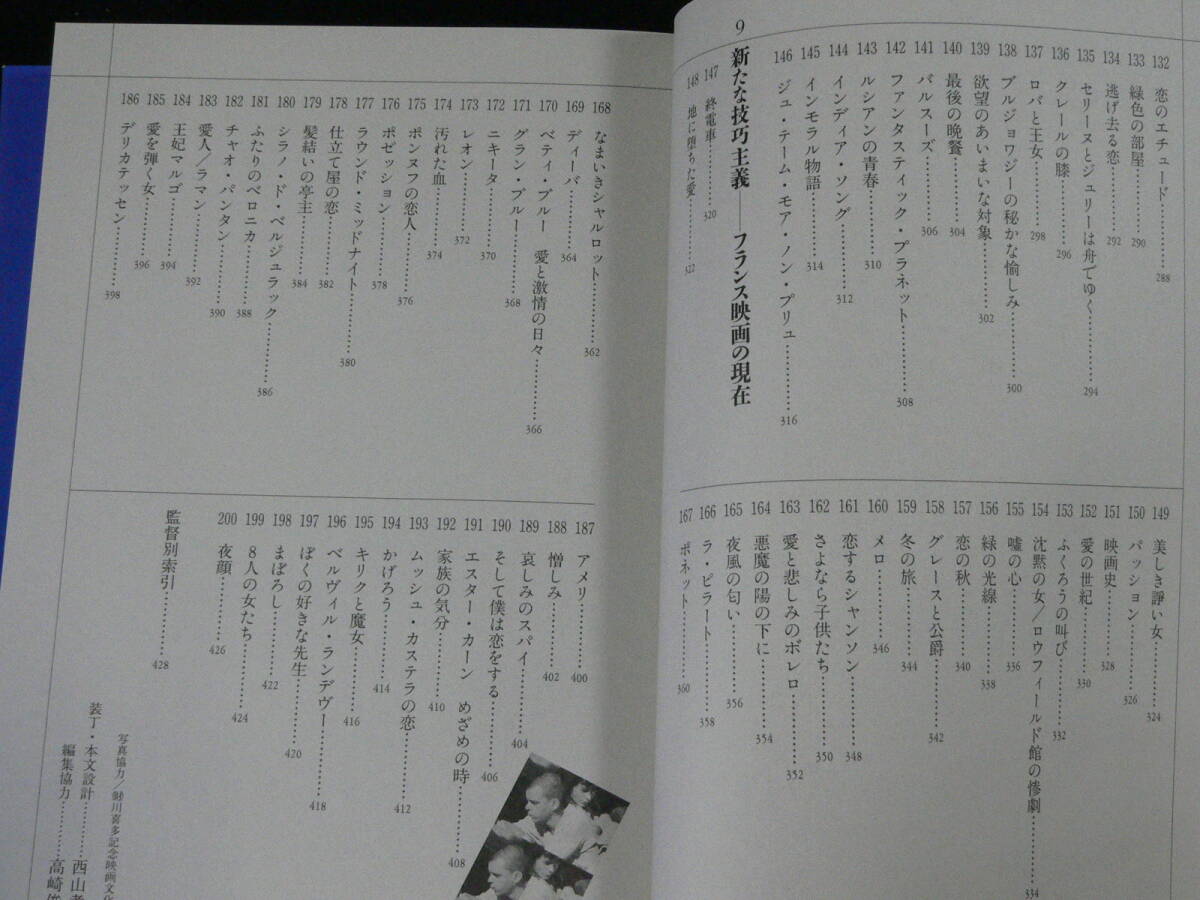 132 恋のエチュード……288
133 緑色の部屋……290
134 逃げ去る恋……292
135 セリーヌとジュリーは舟でゆく……294
136 クレールの膝……296
137 ロバと王女……298
138 ブルジョワジーの秘かな愉しみ……300
139 欲望のあいまいな対象……302
140 最後の晩餐……304
141 バルスーズ……306
142 ファンタスティック・プラネット……308
143 ルシアンの青春……310
144 インディア・ソング……312
145 インモラル物語……314
146 ジュ・テーム・モア・ノン・プリュ……316
9 新たな技巧主義――フランス映画の現在
147 終電車……320
148 地に堕ちた愛……322
149 美しき諍い女……324
150 パッション……326
151 映画史……328
152 愛の世紀……330
153 ふくろうの叫び……332
154 沈黙の女/ロウフィールド館の惨劇……334
155 嘘の心……336
156 緑の光線……338
157 恋の秋……340
158 グレースと公爵……342
159 冬の旅……344
160 メロ……346
161 恋するシャンソン……348
162 さよなら子供たち……350
163 愛と悲しみのボレロ……352
164 悪魔の陽の下に……354
165 夜風の匂い……356
166 ラ・ピラート……358
167 ポネット……360
168 なまいきシャルロット……362
169 ディーバ……364
170 ベティ・ブルー 愛と激情の日々……366
171 グラン・ブルー……368
172 ニキータ……370
173 レオン……372
174 汚れた血……374
175 ポンヌフの恋人……376
176 ポゼッション……378
177 ラウンド・ミッドナイト……380
178 仕立て屋の恋……382
179 髪結いの亭主……384
180 シラノ・ド・ベルジュラック……386
181 ふたりのベロニカ……388
182 チャオ・パンタン……390
183 愛人/ラマン……392
184 王妃マルゴ……394
185 愛を弾く女……396
186 デリカテッセン……398
187 アメリ……400
188 憎しみ……402
189 哀しみのスパイ……404
190 そして僕は恋をする……406
191 エスター・カーン めざめの時……408
192 家族の気分……410
193 ムッシュ・カステラの恋……412
194 かげろう……414
195 キリクと魔女……416
196 ベルヴィル・ランデヴー……418
197 ぼくの好きな先生……420
198 まぼろし……422
199 8人の女たち……424
200 夜顔……426
監督別索引……428
写真協力/㈶川喜多記念映画文化
装丁・本文設計……西山孝
編集協力……高崎俊